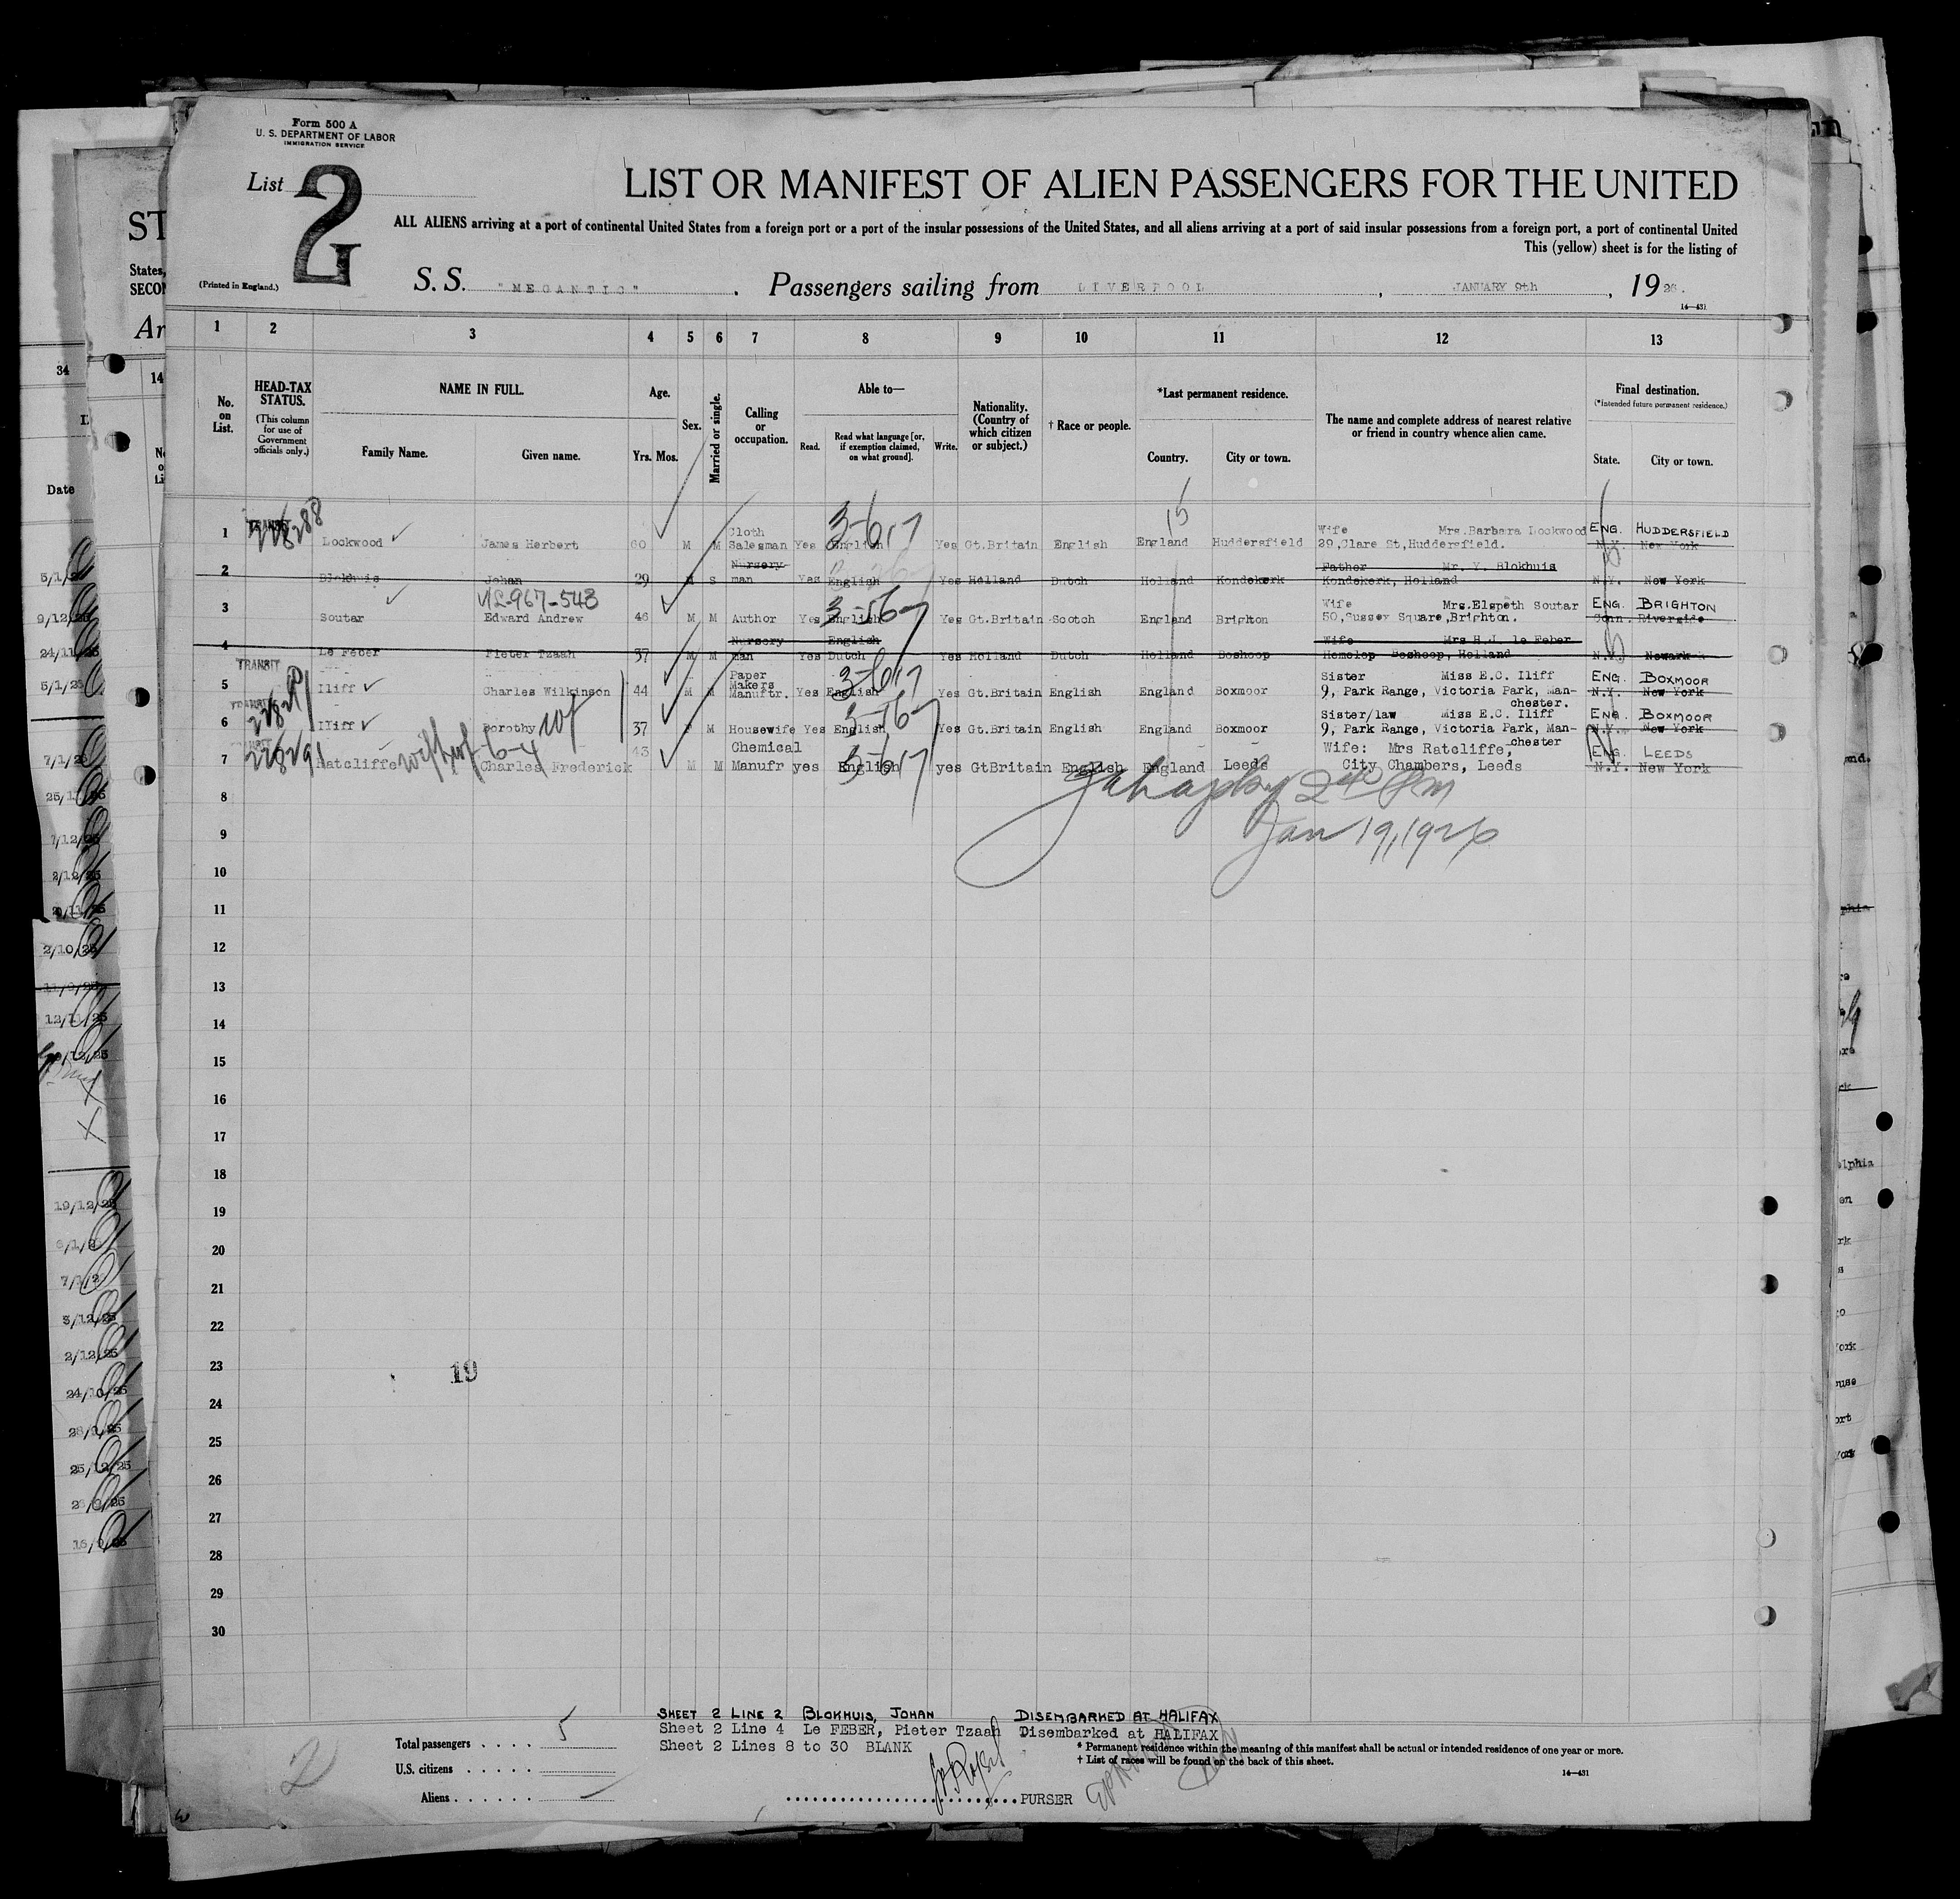 Form 500 A
U. S. DEPARTMENT OF LABOR
IMMIGRATION SERVICE
List 2
LIST OR MANIFEST OF ALIEN PASSENGERS FOR THE UNITED
ALL ALIENS arriving at a port of continental United States from a foreign port or a port of the insular possessions of the United States, and all aliens arriving at a port of said insular possessions from a foreign port, a port of continental United
This (yellow) sheet is for the listing of
(Printed in England.)
S. S. "MEGANTIC". Passengers sailing from LIVERPOOL, JANUARY 9th, 1926.
14—431
1 2 3 4 5 6 7 8 9 10 11 12 13
No. on List.
HEAD-TAX STATUS.
(This column for use of Government officials only.)
NAME IN FULL.
Family Name. Given name.
Age.
Yrs. Mos.
Sex.
Married or single.
Calling or occupation.
Able to—
Read. Read what language [or, if exemption claimed, on what ground]. Write.
Nationality. (Country of which citizen or subject.)
† Race or people.
*Last permanent residence.
Country. City or town.
The name and complete address of nearest relative or friend in country whence alien came.
Final destination.
(*Intended future permanent residence.)
State. City or town.
Cloth 3-617 Wife Mrs.Barbara Lockwood ENG. HUDDERSFIELD
1 Lockwood James Herbert 60 M M Salesman Yes English Yes Gt.Britain English England Huddersfield 29,Clare St,Huddersfield. N.Y. New York
Nursery- Father Mr. Y. Blokhuis
2 Blokhuis Johan 29 M S man Yes English Yes Holland Dutch Holland Kondekerk Kondekerk, Holland N.Y. New York
V/S-967-543 Wife Mrs.Elspeth Soutar ENG. BRIGHTON
3 Soutar Edward Andrew 46 M M Author Yes English Yes Gt.Britain Scotch England Brighton 50,Sussex Square,Brighton. Conn. Riverside
Nursery English Wife Mrs H.J. le Feber
4 Le Feber Pieter Tzaah 37 M M man Yes Dutch Yes Holland Dutch Holland Boshoop Hemelop Boshoop, Holland N.Y. Newark
TRANSIT Paper Makers 3-617 Sister Miss E.C. Iliff ENG. BOXMOOR
5 Iliff Charles Wilkinson 44 M M Manuftr. Yes English Yes Gt.Britain English England Boxmoor 9, Park Range, Victoria Park, Man-chester. N.Y. New York
TRANSIT Sister/law Miss E.C. Iliff ENG. BOXMOOR
6 Iliff Dorothy 37 F M Housewife Yes English Yes Gt.Britain English England Boxmoor 9, Park Range, Victoria Park, Man-chester N.Y. New York
43 Chemical Wife: Mrs Ratcliffe, ENG. LEEDS
7 Ratcliffe Charles Frederick M M Manufr yes English yes GtBritain English England Leeds City Chambers, Leeds N.Y. New York
8
Jan 19, 1926
9
10
11
12
13
14
15
16
17
18
19
20
21
22
23
19
24
25
26
27
28
29
30
SHEET 2 LINE 2 BLOKHUIS, JOHAN DISEMBARKED AT HALIFAX
Sheet 2 Line 4 Le FEBER, Pieter Tzaah Disembarked at HALIFAX
Sheet 2 Lines 8 to 30 BLANK
Total passengers . . . . 5
U.S. citizens . . . . .
Aliens . . . . . .
2
PURSER
* Permanent residence within the meaning of this manifest shall be actual or intended residence of one year or more.
† List of races will be found on the back of this sheet.
14—431